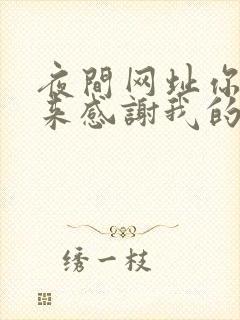 夜間网址你
来感謝我的
绣一枝